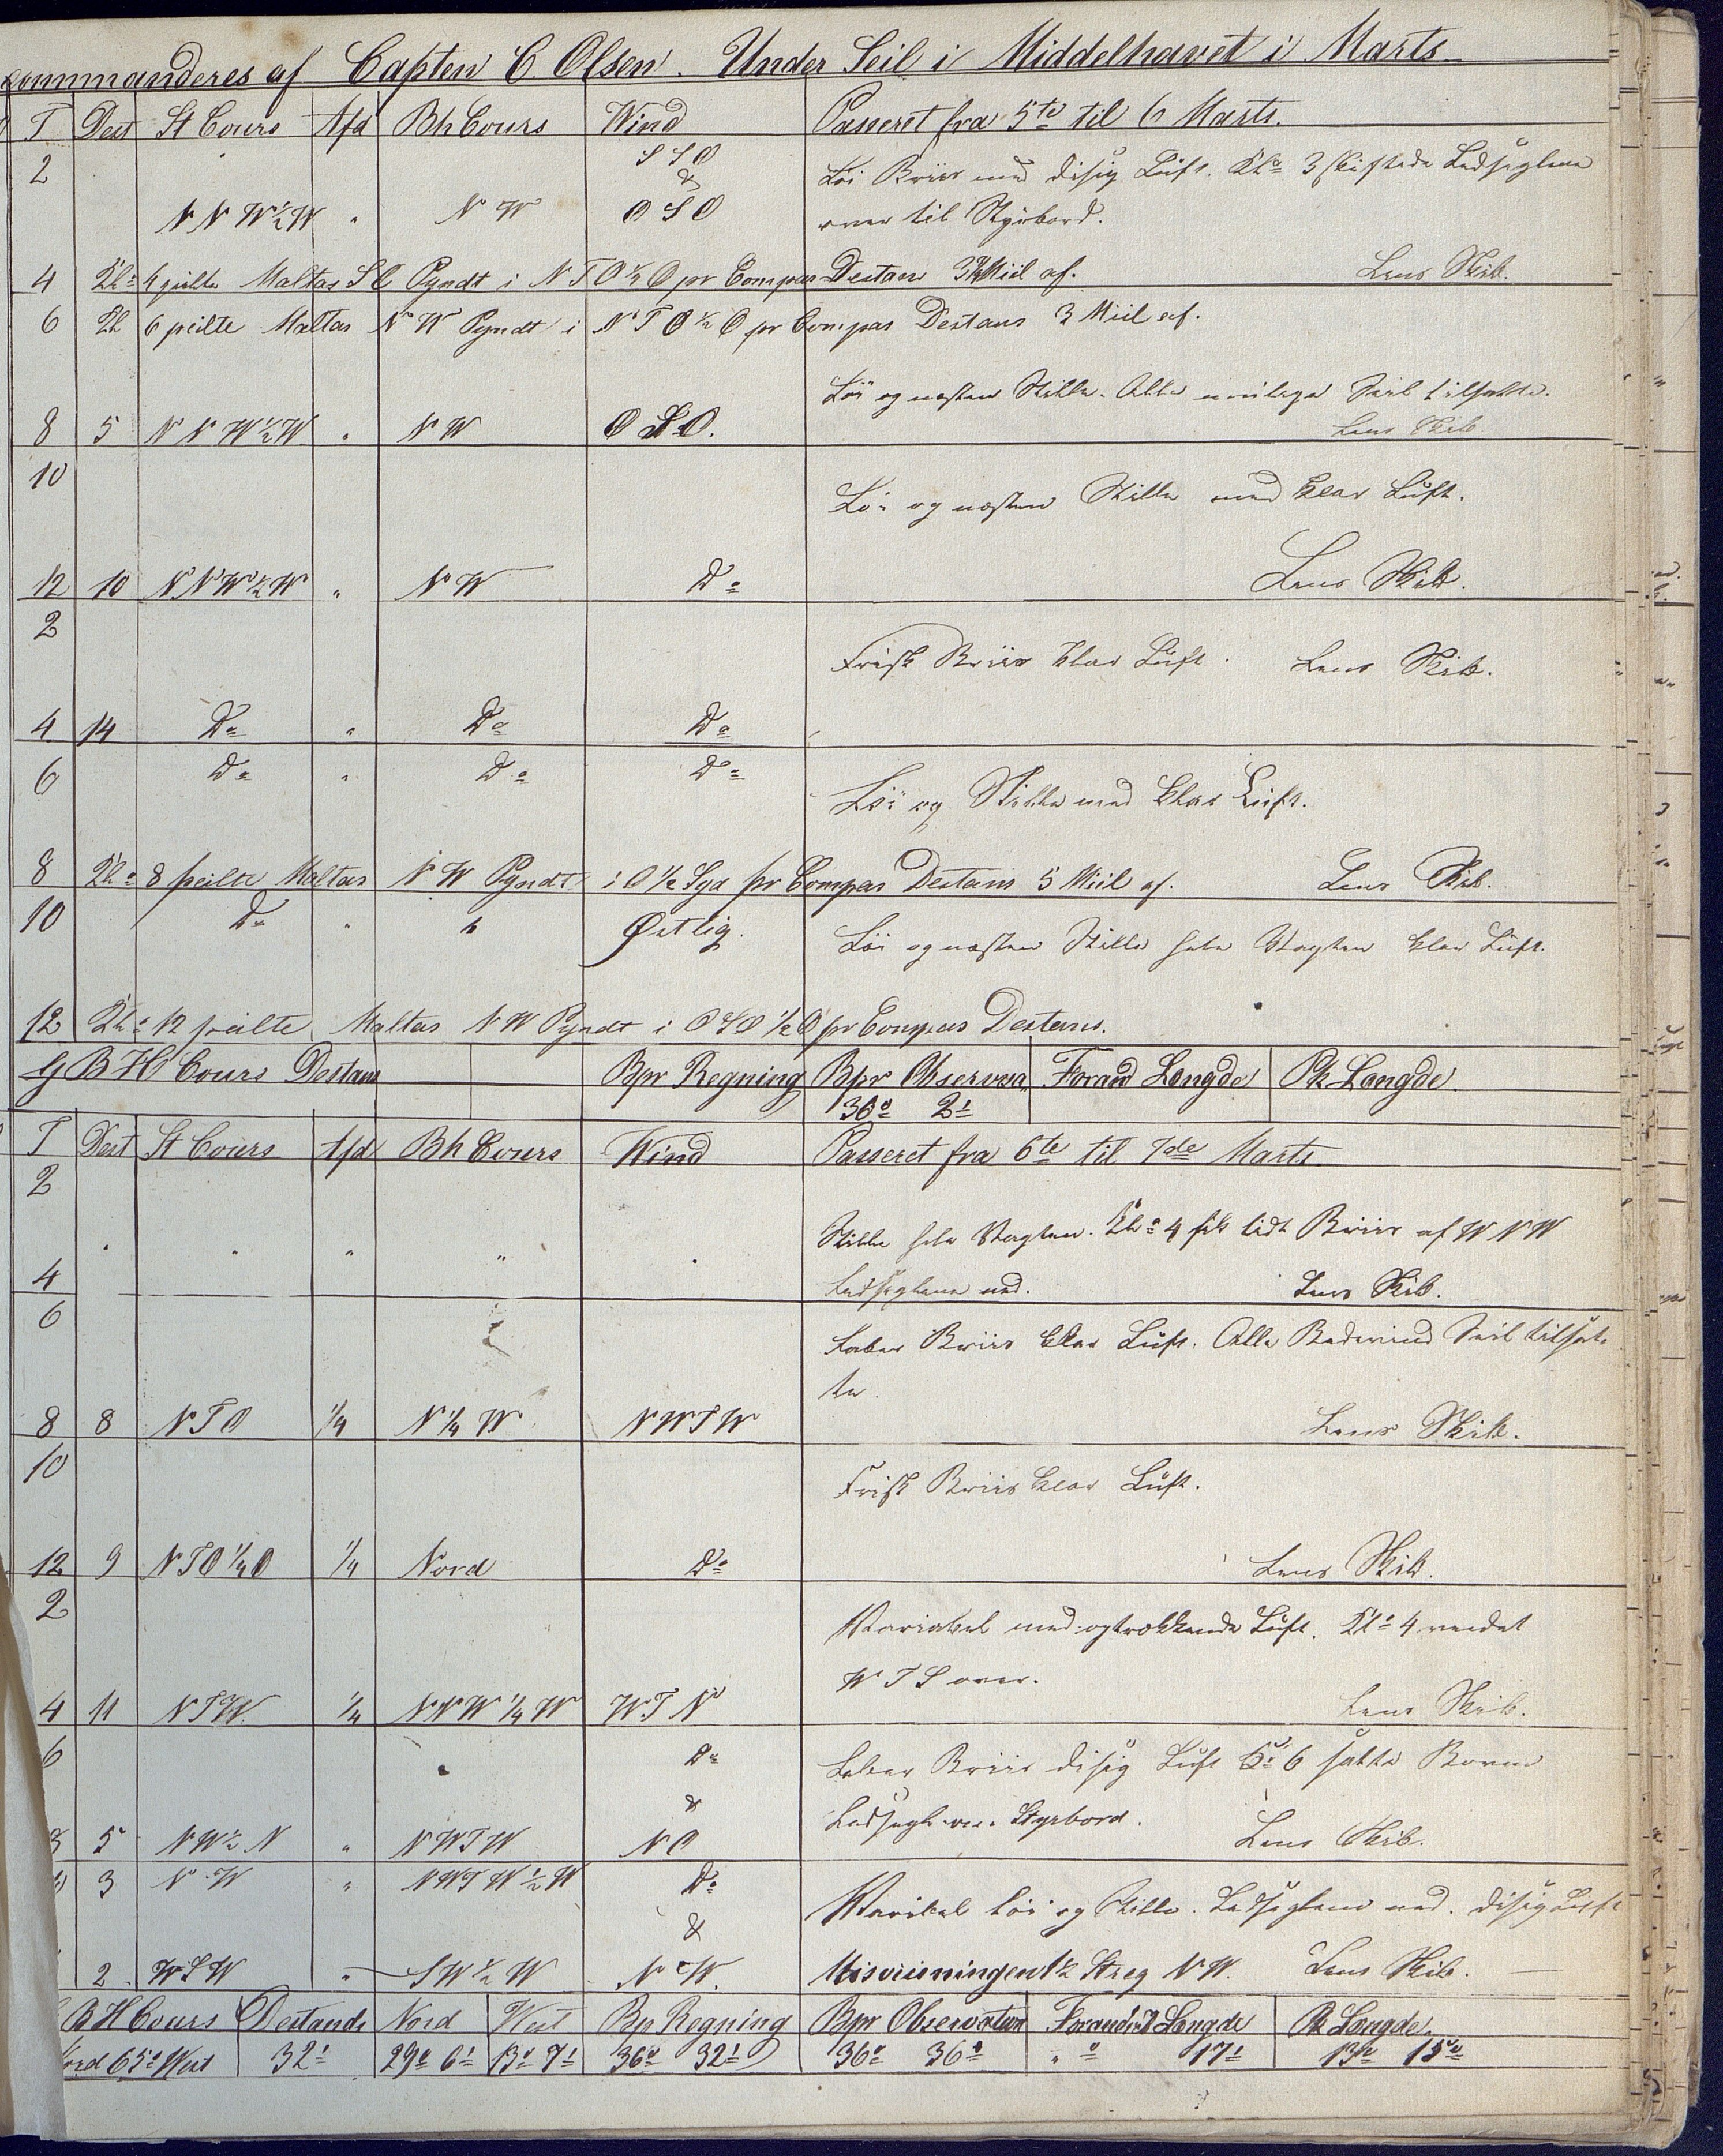 kommanderes af Capten C. Olsen. Under Seil i Middelhavet i Marts
T Dest St Cours Afd Bh Cours Wind Passeret fra 5te til 6 Marts.
2 S S O Löi Briis med disig Luft. Kl: 3 skiftede Ledseglene
&
N N W ½ W " N W O S O over til Styrbord.
4 Kl: 4 peilte Maltas S O Pyndt i N T O ½ O pr Compas Destans Miil af. Lens Skib.
6 Kl 6 peilte Maltas N W Pyndt i N T O ½ O pr Compas Destans 3 Miil af.
Löi og næsten Stille. Alle mulige Seil tilsatte.
8 5 N N W ½ W " N W O S O. Lens Skib
10
Löi og næsten Stille med klar Luft.
12 10 N N W ½ W " N W Do Lens Skib.
2
Frisk Briis klar Luft. Lens Skib.
4 14 Do " Do Do
6 Do " Do Do
Löi og Stille med klar Luft.
8 Kl: 8 peilte Maltas N W Pyndt i O ½ Syd pr Compas Destans 5 Miil af. Lens Skib.
10 Do " " Østlig. Löi og næsten Stille hele Vagten klar Luft.
12 Kl: 12 peilte Maltas N W Pyndt i O S O ½ O pr Compas Destans.
G B H Cours Destans Bpr Regning Bpr Observa Forand Længde Pk Længde
36° 2'
T Dest St Cours Afd Bh Cours Wind Passeret fra 6te til 7de Marts
2
Stille hele Vagten. Kl: 4 fik lidt Briis af W N W
4 " " " " Ledseglene ned. Lens Skib.
6
Laber Briis klar Luft. Alle Bidevind Seil tilsat
te.
8 8 N T O ¼ N ¼ W N W T W Lens Skib.
10
Frisk Briis klar Luft.
12 9 N T O ¼ O ¼ Nord Do Lens Skib.
2
Variabel med optrækkende Luft. Kl: 4 vendet
W T S over.
4 11 N T W ¼ N N W ¼ W W T N Lens Skib.
6 Do Laber Briis disig Luft Kl: 6 satte Boven
& Ledsegl Styrbord.
5 N W ½ N " N W T W N O Lens Skib.
3 N W " N W T W ½ W Do
& Varibel löi og Stille. Ledseglene ned. disig Luft
2 W S W " S W ½ W N W. Misviisningen 1½ Streg N W. Lens Skib.
B H Cours Destands Nord West Bp Regning Bpr Observation Forandret Længde Pk Længde
Nord 65° West 32' 29° 6' 13° 7' 36° 32' 36° 36' " ° 17' 13° 15'